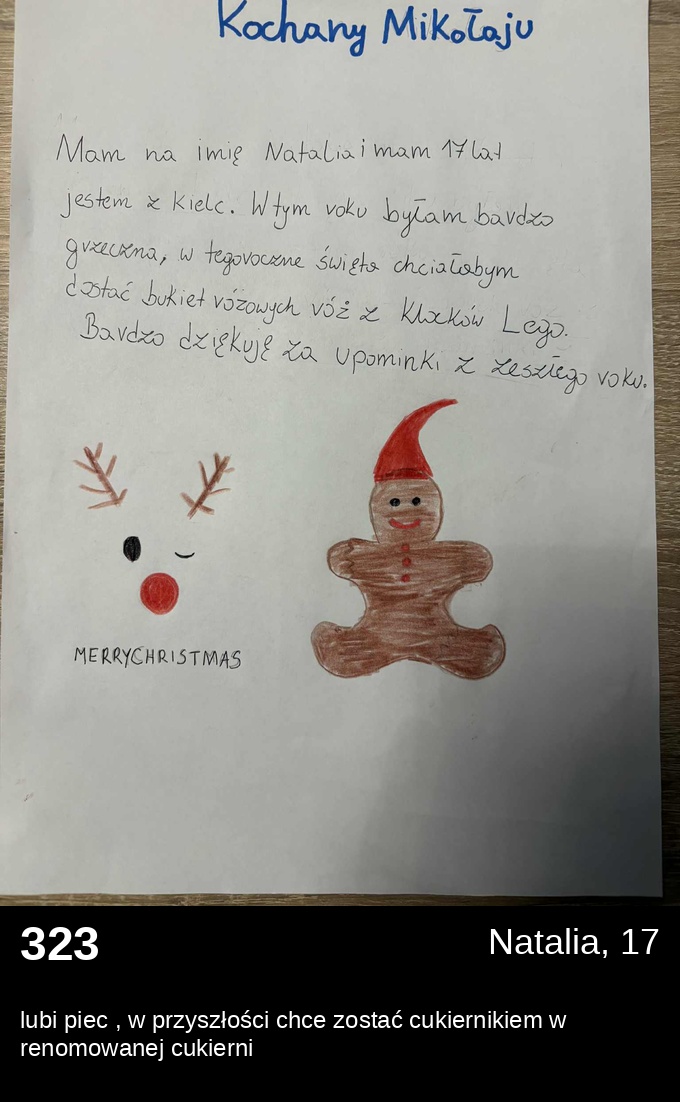 Kochany Mikołaju
Mam na imię Natalia i mam 17 lat
jestem z Kielc. W tym roku byłam bardzo
grzeczna, w tegoroczne święta chciałabym
dostać bukiet różowych róż z klocków Lego.
Bardzo dziękuję za upominki z zeszłego roku.
MERRYCHRISTMAS
323
Natalia, 17
lubi piec , w przyszłości chce zostać cukiernikiem w
renomowanej cukierni